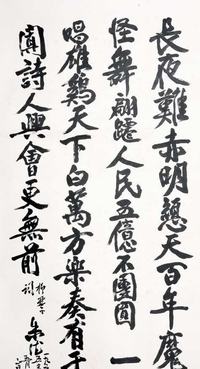 長夜難赤明懸天百年魔
怪舞翩躚人民五億不團圓一
唱雄鷄天下白萬方樂奏有于
闐詩人興會更無前